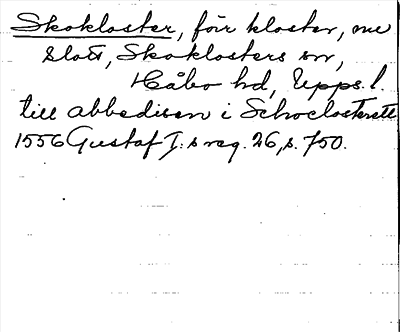 Skokloster, förr kloster, nu
slott, Skoklosters sn,
Håbo hd, Upps. l.
till abbedisan i Schoclosterett
1556 Gustaf I:s reg. 26, s. 750.